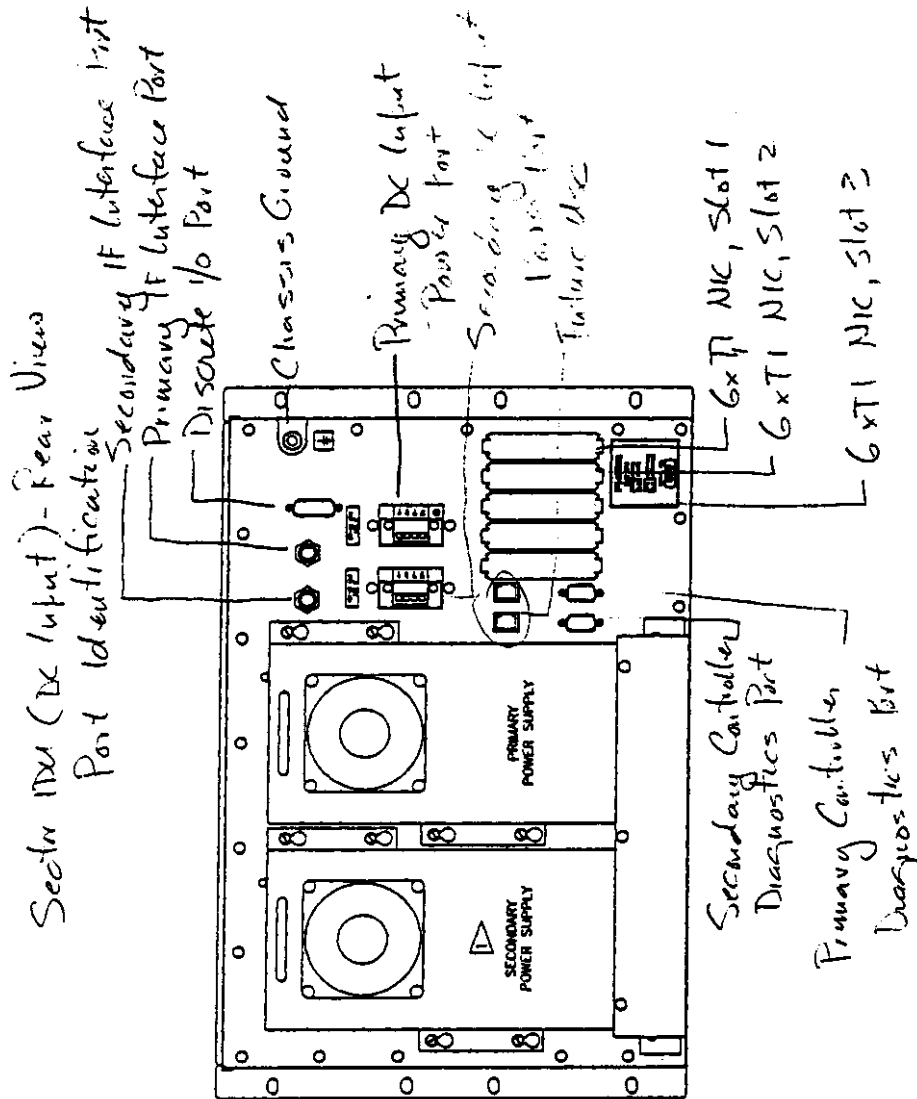 Sector IDU (DC Input) - Rear View
Port Identification
Secondary IF Interface Port
Primary IF Interface Port
Discrete I/O Port
Chassis Ground
Primary DC Input
Power Port
Secondary DC Input
Power Port
Future Use
6xT1 NIC, Slot 1
6xT1 NIC, Slot 2
6xT1 NIC, Slot 3
Secondary Controller
Diagnostics Port
Primary Controller
Diagnostics Port
PRIMARY
POWER SUPPLY
1
SECONDARY
POWER SUPPLY